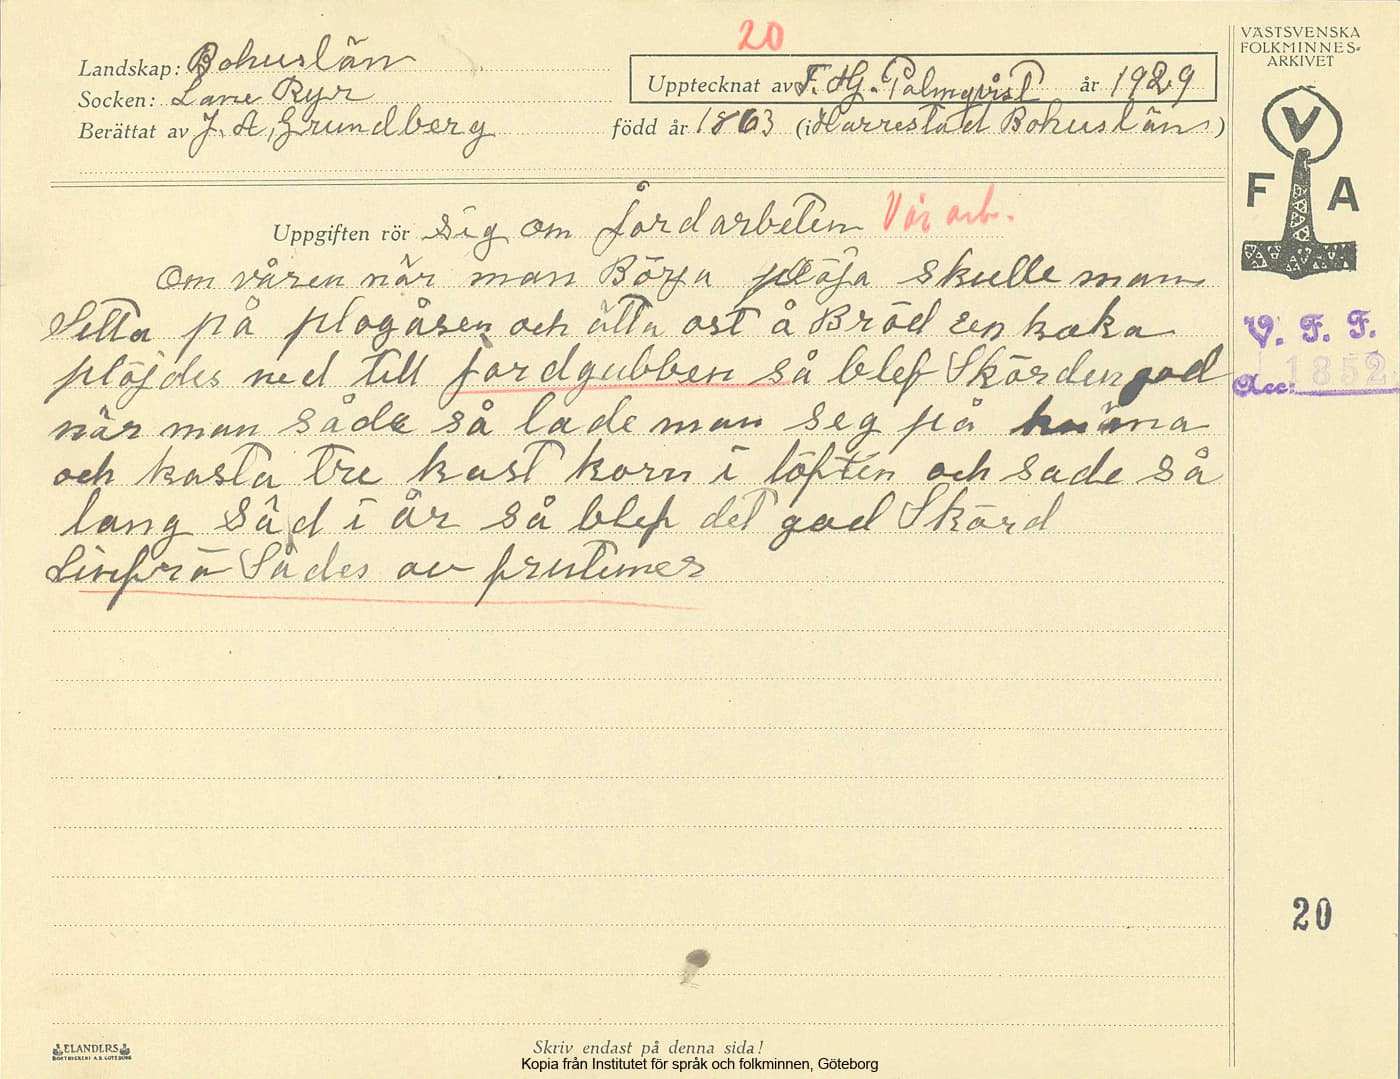 20
Landskap: Bohuslän
Socken: Lane Ryr
Berättat av J. A. Grundberg
Upptecknat av F. Hj. Palmqvist år 1929
född år 1863 (i Harrestad Bohuslän)
Uppgiften rör sig om jordarbeten Vår arb.
om våren när man Börja plöja skulle man
setta på plogåsen och ätta ost å Bröd en kaka
plöjdes ned till jordgubben så blef Skörden god
när man såde så lade man seg på knäna
och kasta tre kast korn i löften och sade så
lang Säd i år så blef det god Skörd
Linfrö Sådes av fruntimer
VÄSTSVENSKA
FOLKMINNES-
ARKIVET
V
F A
V. F. F.
Acc: 1852
20
ELANDERS
BOKTRYCKERI A.B. GÖTEBORG
Skriv endast på denna sida!
Kopia från Institutet för språk och folkminnen, Göteborg